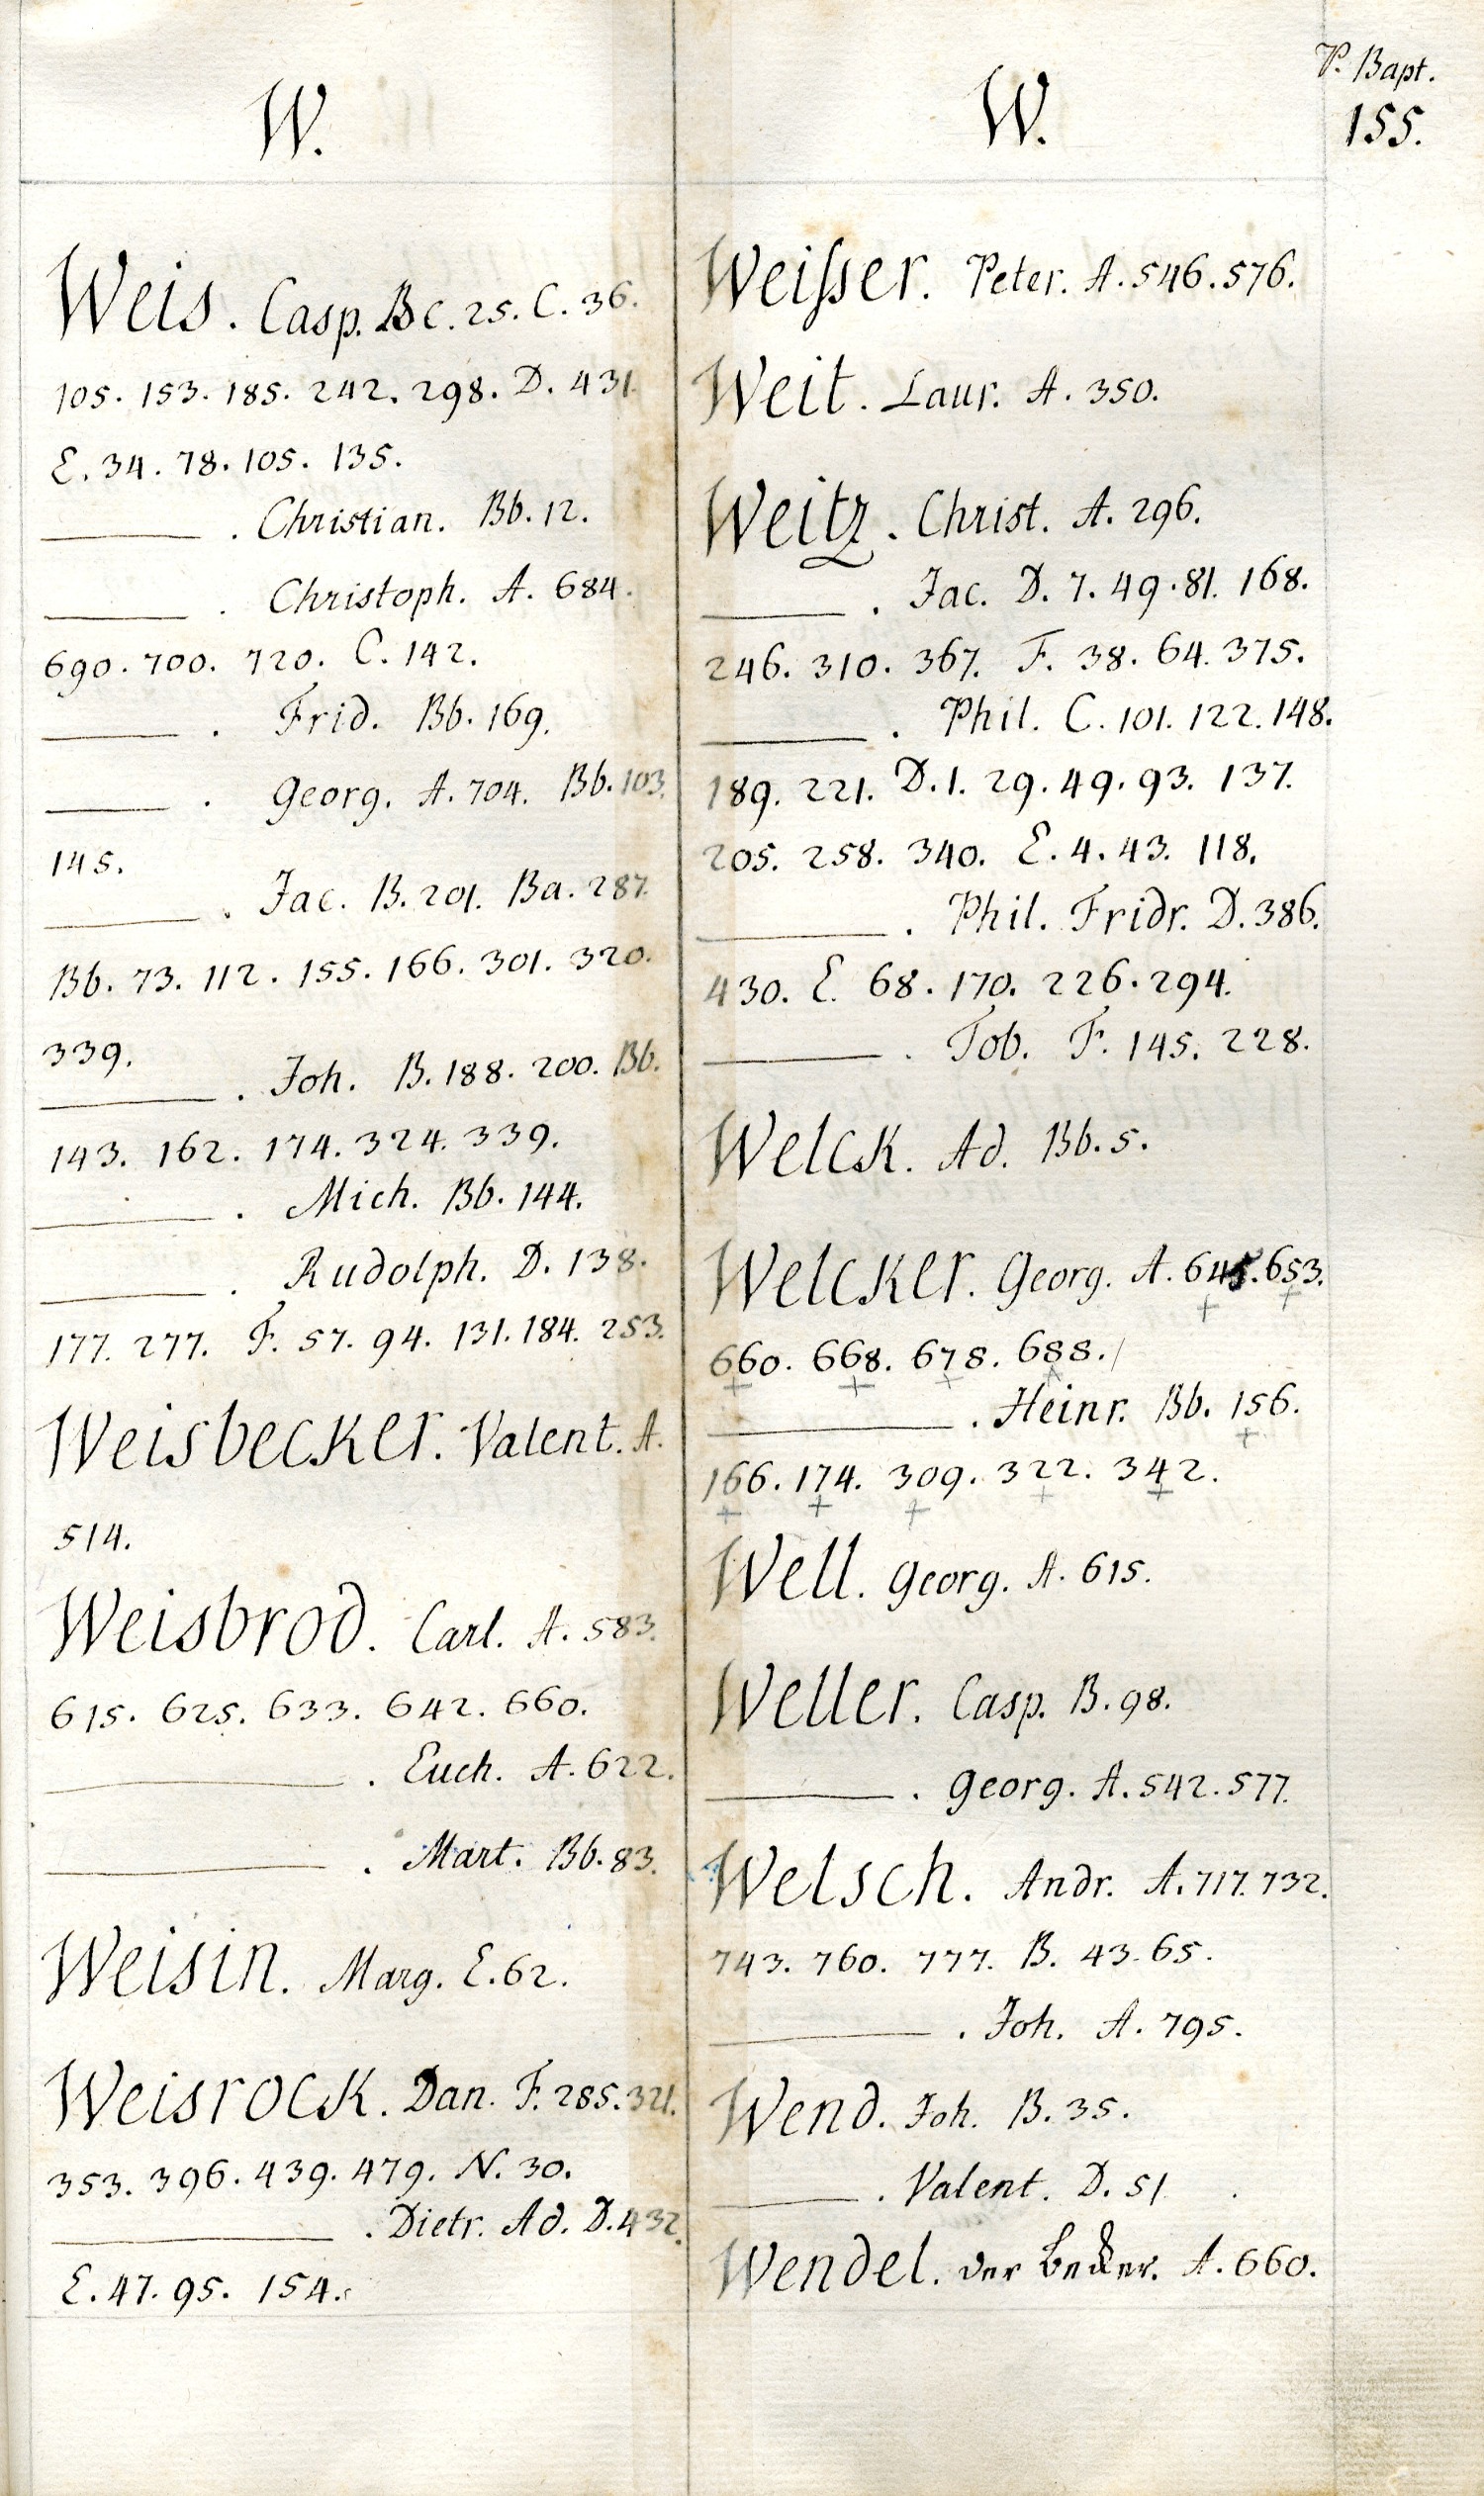 P. Bapt.
155.
W.
Weis. Casp. Bc. 25. C. 36.
105. 153. 185. 242. 298. D. 431.
E. 34. 78. 105. 135.
———. Christian. Bb. 12.
———. Christoph. A. 684.
690. 700. 720. C. 142.
———. Frid. Bb. 169.
———. Georg. A. 704. Bb. 103.
145.
———. Jac. B. 201. Ba. 287.
Bb. 73. 112. 155. 166. 301. 320.
339.
———. Joh. B. 188. 200. Bb.
143. 162. 174. 324. 339.
———. Mich. Bb. 144.
———. Rudolph. D. 138.
177. 277. F. 57. 94. 131. 184. 253.
Weisbecker. Valent. A.
514.
Weisbrod. Carl. A. 583.
615. 625. 633. 642. 660.
———. Euch. A. 622.
———. Mart. Bb. 83.
Weisin. Marg. E. 62.
Weisrock. Dan. F. 285. 321.
353. 396. 439. 479. N. 30.
———. Dietr. Ad. D. 432.
E. 47. 95. 154.
W.
Weiſser. Peter. A. 546. 576.
Weit. Laur. A. 350.
Weitz. Christ. A. 296.
———. Jac. D. 7. 49. 81. 168.
246. 310. 367. F. 38. 64. 375.
———. Phil. C. 101. 122. 148.
189. 221. D. 1. 29. 49. 93. 137.
205. 258. 340. E. 4. 43. 118.
———. Phil. Fridr. D. 386.
430. E. 68. 170. 226. 294.
———. Tob. F. 145. 228.
Welck. Ad. Bb. 5.
Welcker. Georg. A. 645. 653.
660. 668. 678. 688.
———. Heinr. Bb. 156.
166. 174. 309. 322. 342.
Well. Georg. A. 615.
Weller. Casp. B. 98.
———. Georg. A. 542. 577.
Welsch. Andr. A. 717. 732.
743. 760. 777. B. 43. 65.
———. Joh. A. 795.
Wend. Joh. B. 35.
———. Valent. D. 51.
Wendel. der Becker. A. 660.